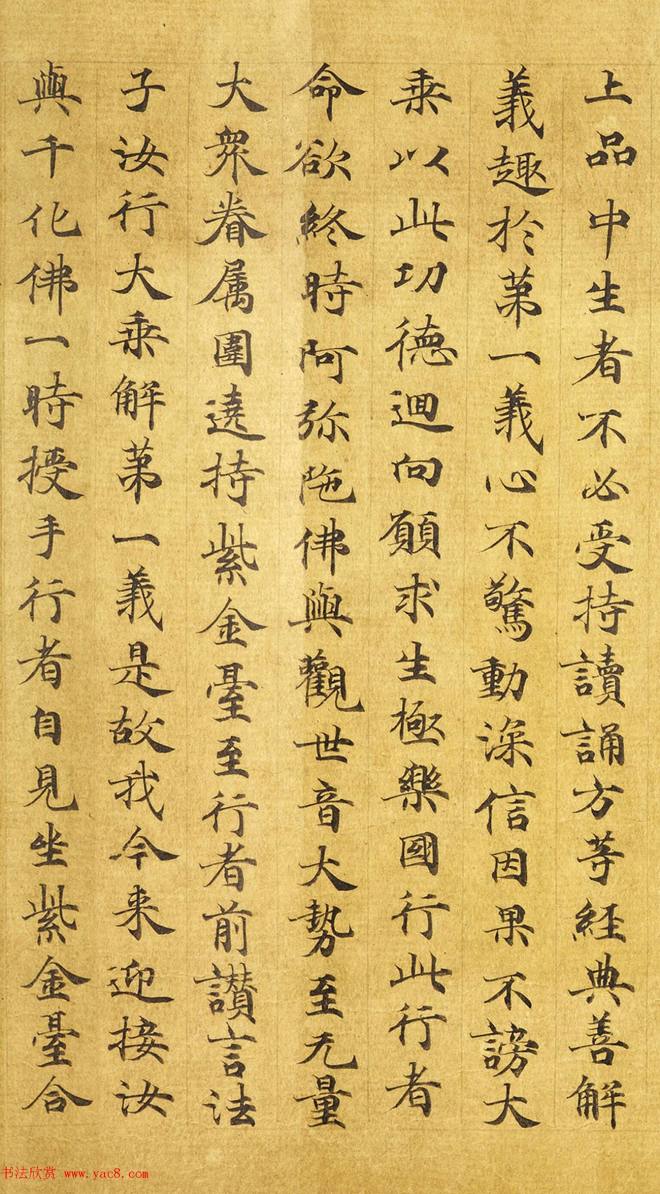 上品中生者不必受持讀誦方等經典善解
義趣於第一義心不驚動深信因果不謗大
乘以此功德迴向願求生極樂國行此行者
命欲終時阿弥陁佛與觀世音大勢至无量
大衆眷属圍遶持紫金臺至行者前讃言法
子汝行大乘解第一義是故我今来迎接汝
與千化佛一時授手行者自見坐紫金臺合
书法欣赏 www.yac8.com